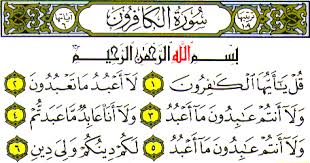 سُورَةُ الكَافِرُونَ آياتها ٦
بِسْمِ اللَّهِ الرَّحْمَٰنِ الرَّحِيمِ
قُلْ يَٰٓأَيُّهَا ٱلْكَٰفِرُونَ ١ لَآ أَعْبُدُ مَا تَعْبُدُونَ ٢
وَلَآ أَنتُمْ عَٰبِدُونَ مَآ أَعْبُدُ ٣ وَلَآ أَنَا۠ عَابِدٌ مَّا عَبَدتُّمْ ٤
وَلَآ أَنتُمْ عَٰبِدُونَ مَآ أَعْبُدُ ٥ لَكُمْ دِينُكُمْ وَلِىَ دِينِ ٦